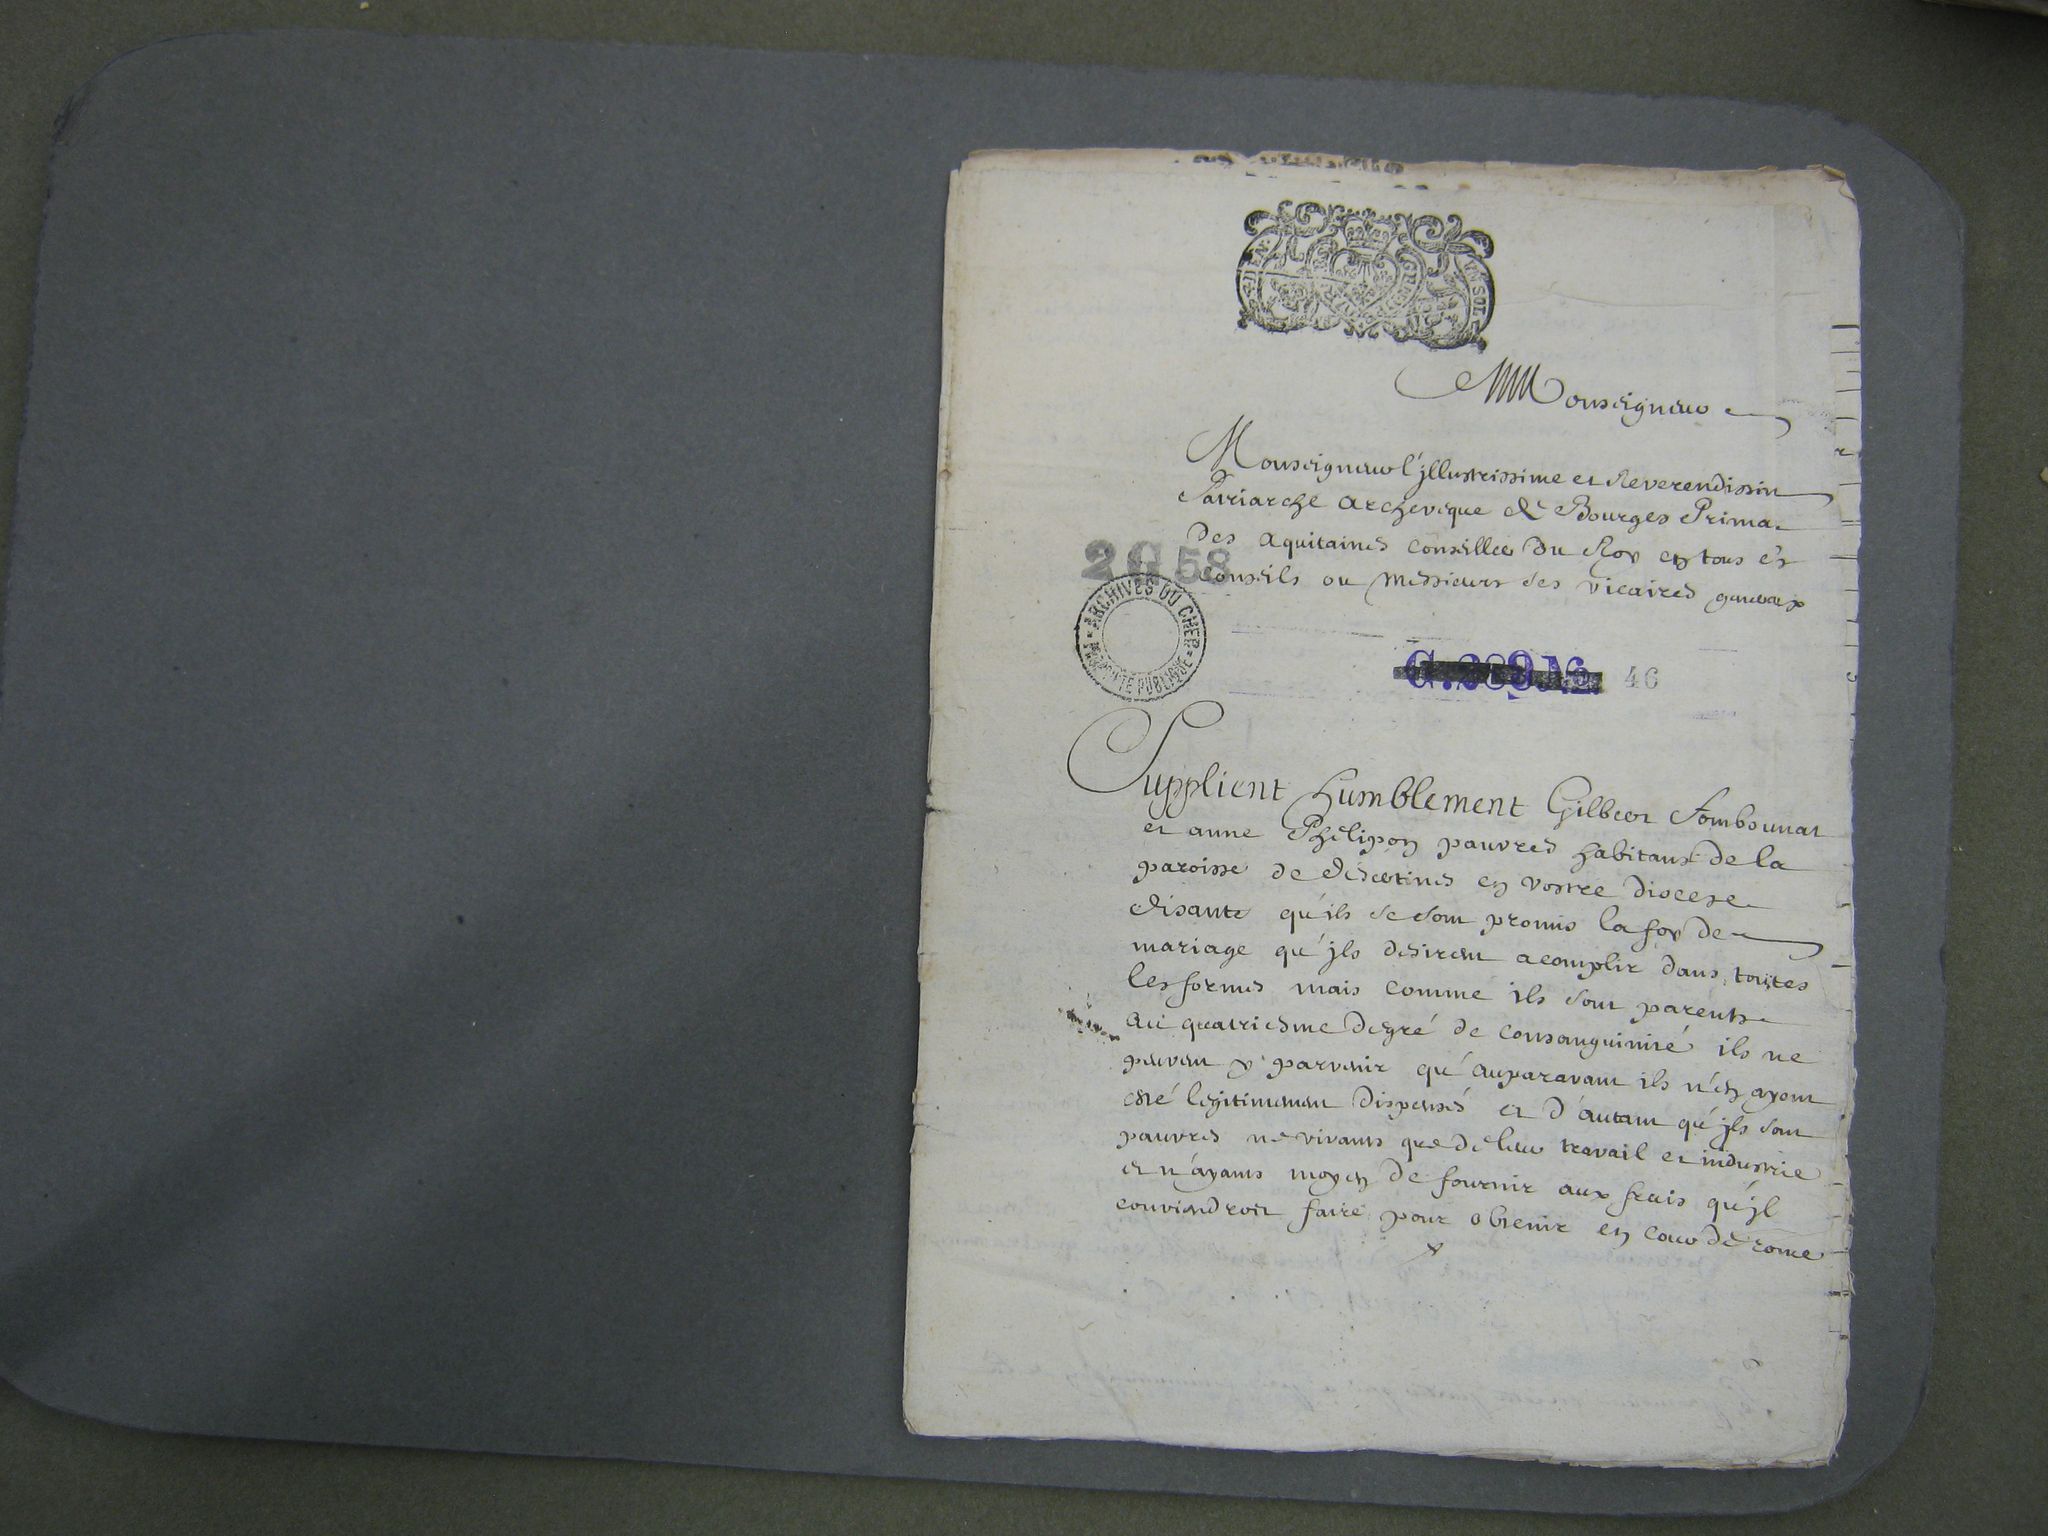 Monseigneur
Monseigneur l'jllustrissime et Reverendissim
Patriarche archevêque de Bourges Prima
des aquitaines conseiller du Roy en tous ses
2 G 58
conseils ou messieurs ses vicaires generaux
ARCHIVES DU CHER
PROPRIÉTÉ PUBLIQUE
46
Supplient humblement Gilbert Fombonnat
et anne Phelipon pauvres habitans de la
paroisse de Desertines en vostre diocese
disants qu'ils se sont promis la foy de
mariage qu'jls desirent acomplir dans toutes
les formes mais comme ils sont parents
au quatriesme degré de consanguinité ils ne
peuvent y parvenir qu'auparavant ils n'en ayent
esté legitimement dispensés et d'autant qu'jls sont
pauvres ne vivants que de leur travail et industrie
et n'ayans moyen de fournir aux frais qu'jl
conviendroit faire pour obtenir en cour de rome